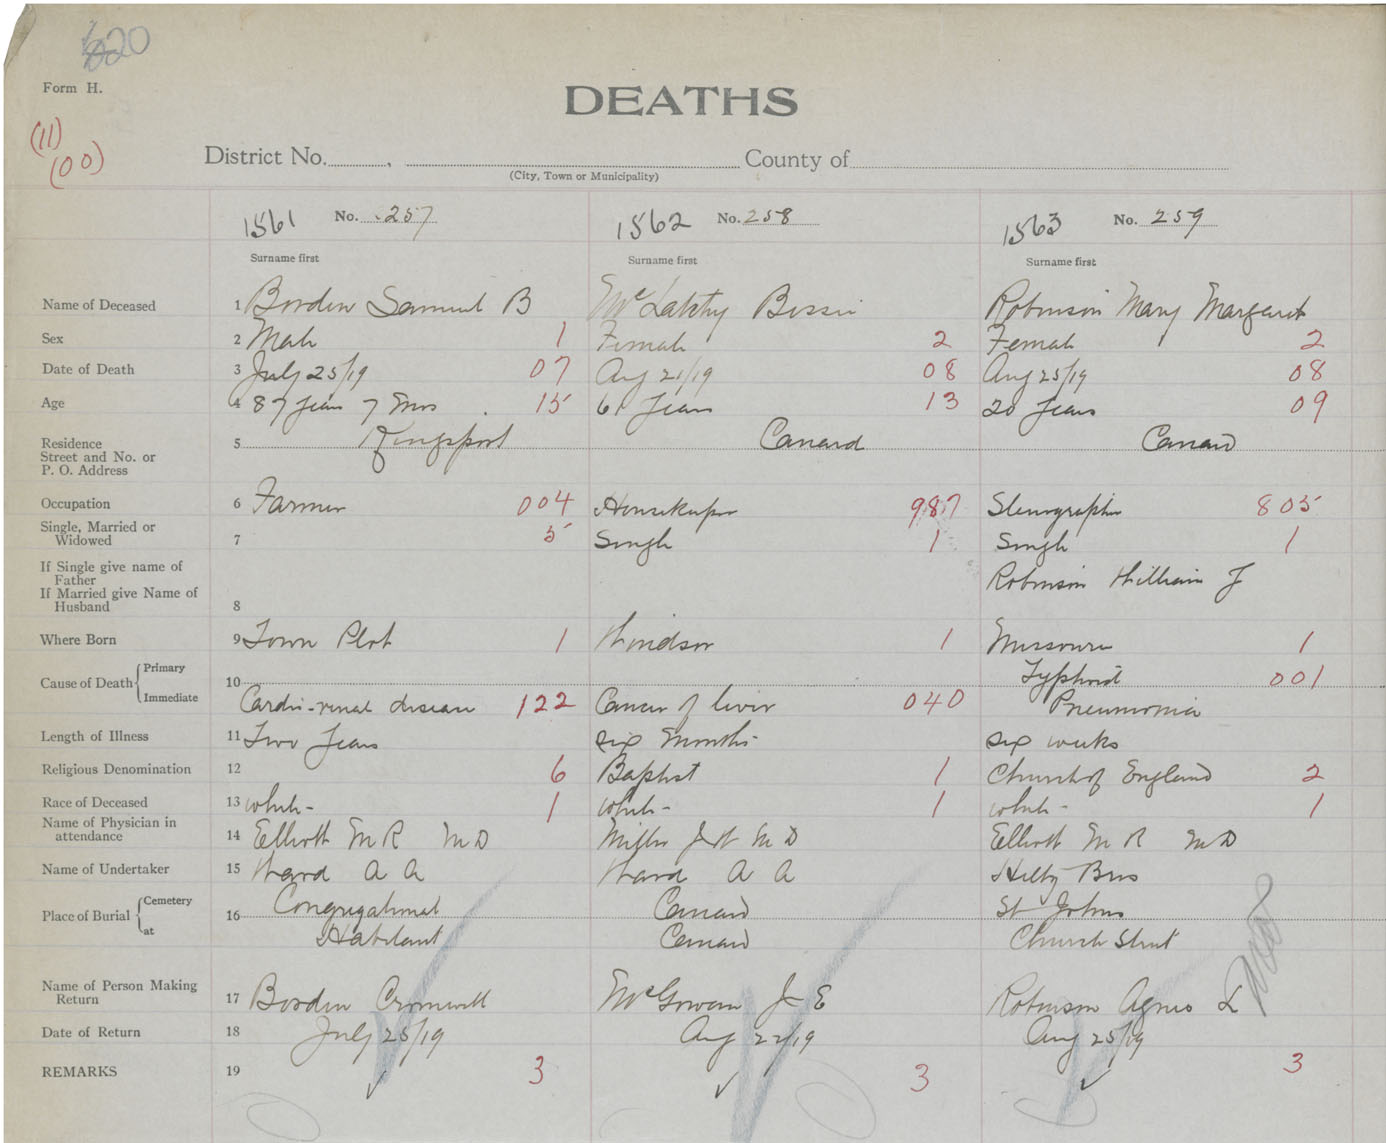 620
Form H.
DEATHS
(11)
(00)
District No. , County of
(City, Town or Municipality)
1561 No. 257 1562 No. 258 1563 No. 259
Surname first Surname first Surname first
Name of Deceased 1 Borden Samuel B McLatchy Bessie Robinson Mary Margaret
Sex 2 Male 1 Female 2 Female 2
Date of Death 3 July 25/19 07 Aug 21/19 08 Aug 25/19 08
Age 4 87 Years 7 Mos. 15 61 Years 13 20 Years 09
Residence
Street and No. or
P. O. Address 5 Kingsport Canard Canard
Occupation 6 Farmer 004 Housekeeper 987 Stenographer 805
Single, Married or
Widowed 7 5 Single 1 Single 1
If Single give name of
Father
If Married give Name of
Husband 8 Robinson William J
Where Born 9 Town Plot 1 Windsor 1 Missouri 1
Cause of Death { Primary 10 Typhoid 001
Immediate Cardio-renal disease 122 Cancer of liver 040 Pneumonia
Length of Illness 11 Two Years six Months six weeks
Religious Denomination 12 6 Baptist 1 Church of England 2
Race of Deceased 13 white 1 white 1 white 1
Name of Physician in
attendance 14 Elliott M R M D Miller J W M D Elliott M R M D
Name of Undertaker 15 Ward A A Ward A A Hiltz Bros
Place of Burial { Cemetery 16 Congregational Canard St Johns
at Habitant Canard Church Street
Name of Person Making
Return 17 Borden Cromwell McGowan J E Robinson Agnes L
Date of Return 18 July 25/19 Aug 22/19 Aug 25/19
REMARKS 19 3 3 3